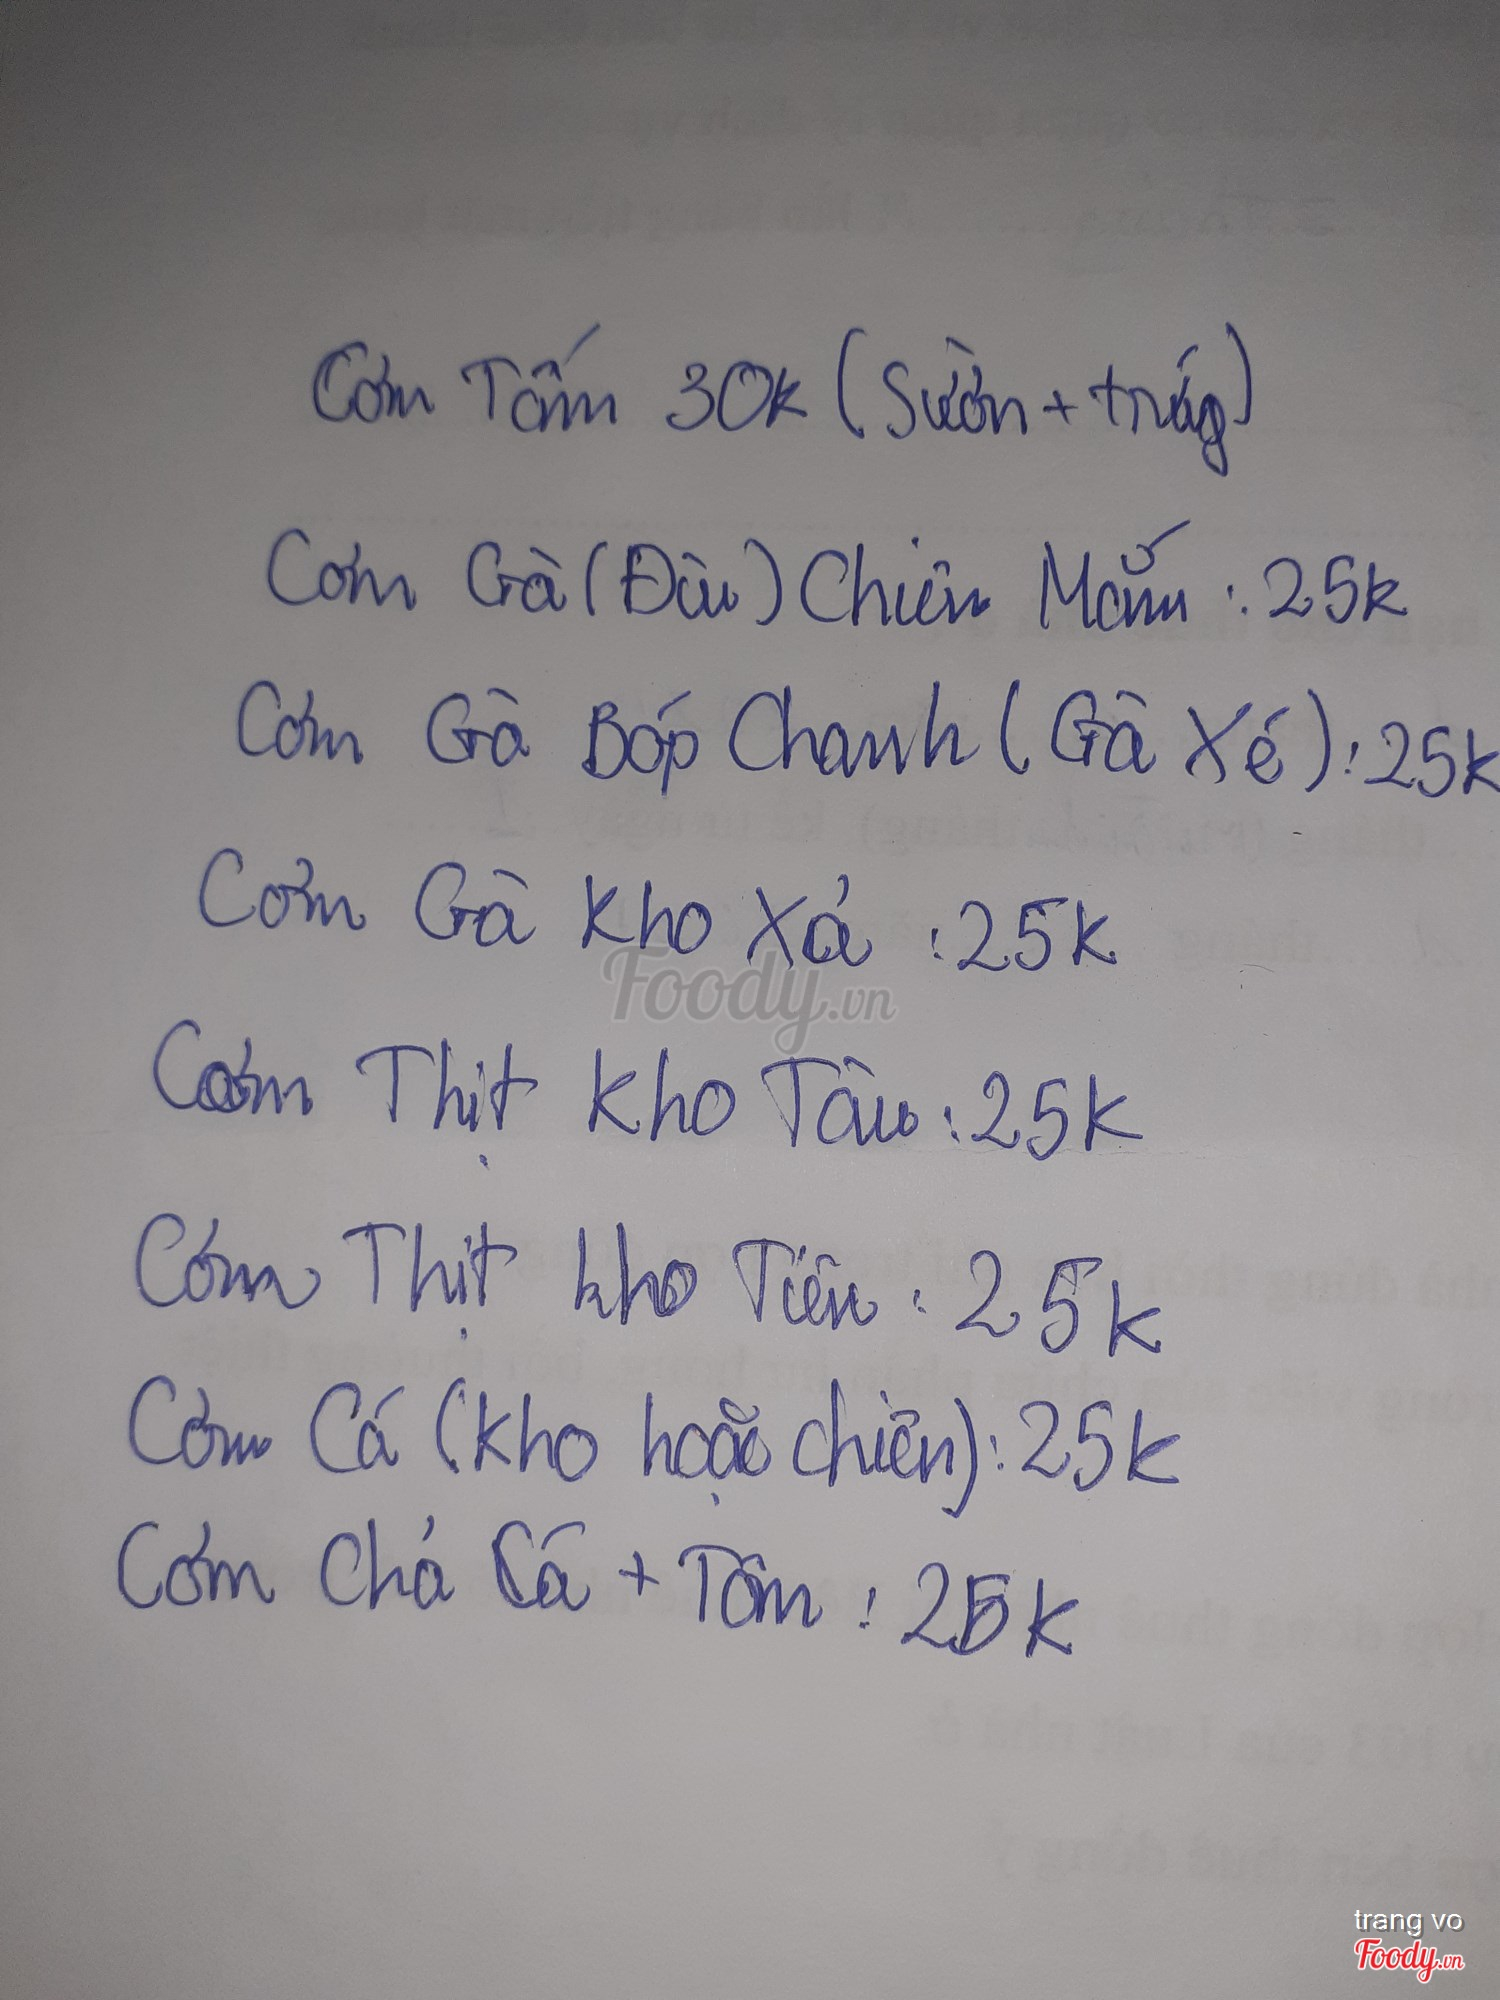 Cơm Tấm 30k (Sườn + trứng)
Cơm Gà (Đùi) Chiên Mắm : 25k
Cơm Gà Bóp Chanh (Gà Xé) : 25k
Cơm Gà Kho Xả : 25k
Foody.vn
Cơm Thịt Kho Tàu : 25k
Cơm Thịt kho Tiêu : 25k
Cơm Cá (Kho hoặc chiên) : 25k
Cơm Chả Cá + Tôm : 25k
trang vo
Foody.vn